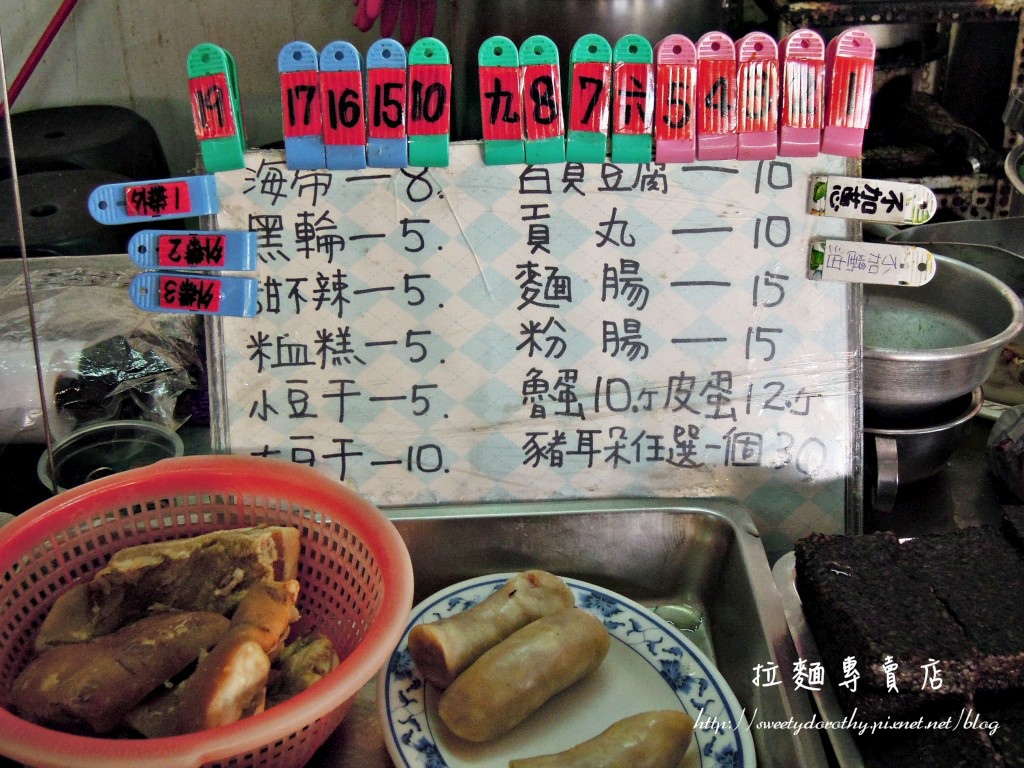 19 17 16 15 10 九 8 7 六 5 4 1
海帶一8.
黑輪一5.
甜不辣一5.
米血糕一5.
小豆干一5.
大豆干一10.
百頁豆腐一10
貢丸一10
麵腸一15
粉腸一15
魯蛋10.ケ皮蛋12.ケ
豬耳朵任選一個30
外帶1
外帶2
外帶3
不加蔥
不加油
拉麵專賣店
http://sweetydorothy.pixnet.net/blog